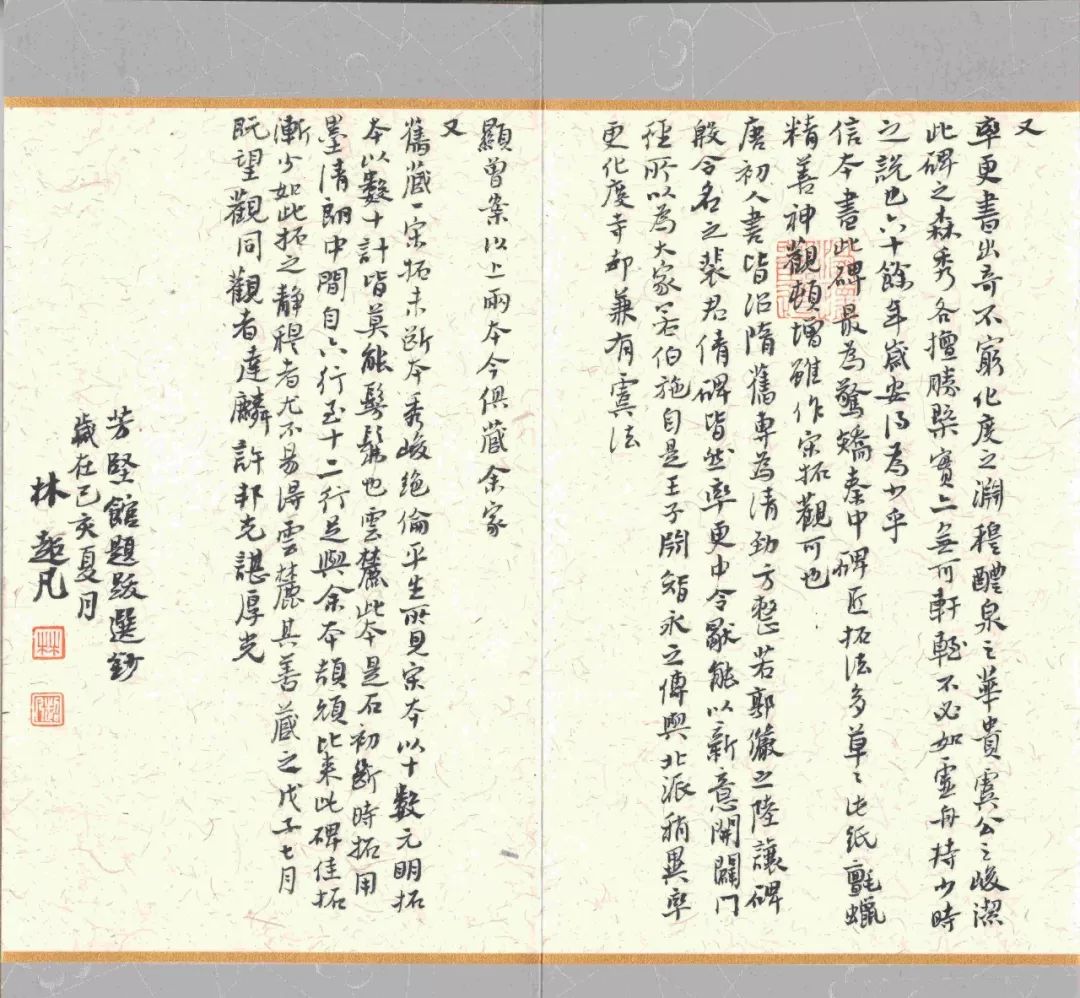 又
率更書出奇不窮化度之淵穆醴泉之華貴虞公之峻潔
此碑之森秀各擅勝槩實亡無可軒輊不必如靈舟持少時
之說也六十餘年歲安得為少乎
信本書此碑最為驚矯秦中碑匠拓法多草〻此紙氈蠟
精善神觀頓增雖作宋拓觀可也
唐初人書皆沿隋舊專為清勁方整若郭儼之陸讓碑
殷令名之裴君倩碑皆然率更中令厭能以新意開闢門
徑所以為大家若伯施自是王子開智永之傳與北派稍異率
更化度寺却兼有虞法
顯曾案以上兩本今俱藏余家
又
舊藏一宋拓未斷本秀峻絕倫平生所見宋本以十數元明拓
本以數十計皆莫能髣髴也雲麓此本是石初斷時拓用
墨清朗中間自六行至十二行足與余本頡頏比來此碑佳拓
漸少如此拓之静穆者尤不易得雲麓其善藏之戊子七月
既望觀同觀者達麟許邦光諶厚光
芳堅館題跋選鈔
歲在己亥夏月
林超凡